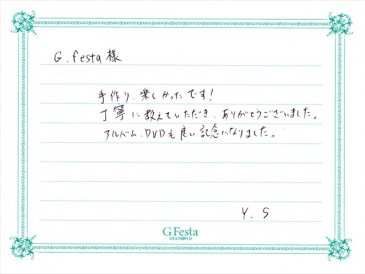 G.festa様
手作り、楽しかったです!
丁寧に教えていただき、ありがとうございました。
アルバム、DVDも良い記念になりました。
Y.S
G.Festa